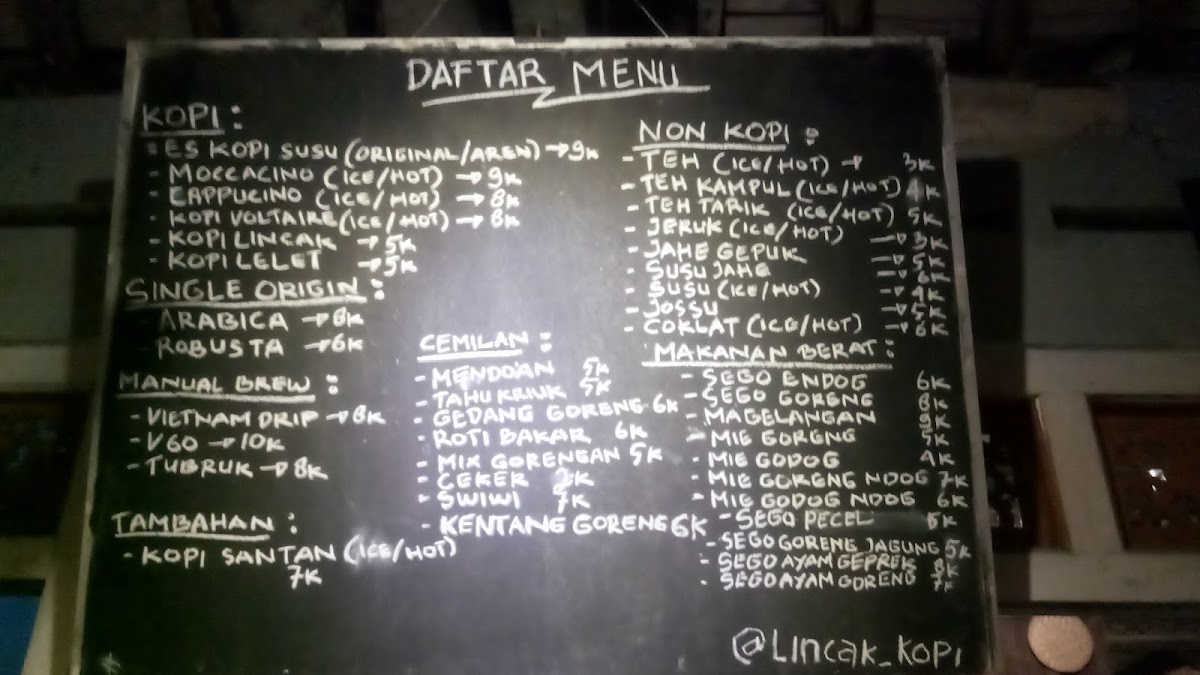 DAFTAR MENU
KOPI :
- ES KOPI SUSU (ORIGINAL/AREN) → 9K
- MOCCACINO (ICE/HOT) → 9K
- CAPPUCINO (ICE/HOT) → 8K
- KOPI VOLTAIRE (ICE/HOT) → 8K
- KOPI LINCAK → 5K
- KOPI LELET → 5K
SINGLE ORIGIN :
- ARABICA → 8K
- ROBUSTA → 6K
MANUAL BREW :
- VIETNAM DRIP → 8K
- V60 → 10K
- TUBRUK → 8K
TAMBAHAN :
- KOPI SANTAN (ICE/HOT)
7K
CEMILAN :
- MENDOAN 5K
- TAHU KRIUK 5K
- GEDANG GORENG 6K
- ROTI BAKAR 6K
- MIX GORENGAN 5K
- CEKER
- SWIWI 7K
- KENTANG GORENG 6K
NON KOPI :
- TEH (ICE/HOT) → 3K
- TEH KAMPUL (ICE/HOT) 4K
- TEH TARIK (ICE/HOT) 5K
- JERUK (ICE/HOT) → 3K
- JAHE GEPUK → 5K
- SUSU JAHE → 6K
- SUSU (ICE/HOT) → 4K
- JOSSU → 5K
- COKLAT (ICE/HOT) → 6K
MAKANAN BERAT :
- SEGO ENDOG 6K
- SEGO GORENG 8K
- MAGELANGAN 9K
- MIE GORENG 5K
- MIE GODOG 4K
- MIE GORENG NDOG 7K
- MIE GODOG NDOG 6K
- SEGO PECEL
- SEGO GORENG JAGUNG 5K
- SEGO AYAM GEPREK 8K
- SEGO AYAM GORENG 7K
@LINCAK_KOPI